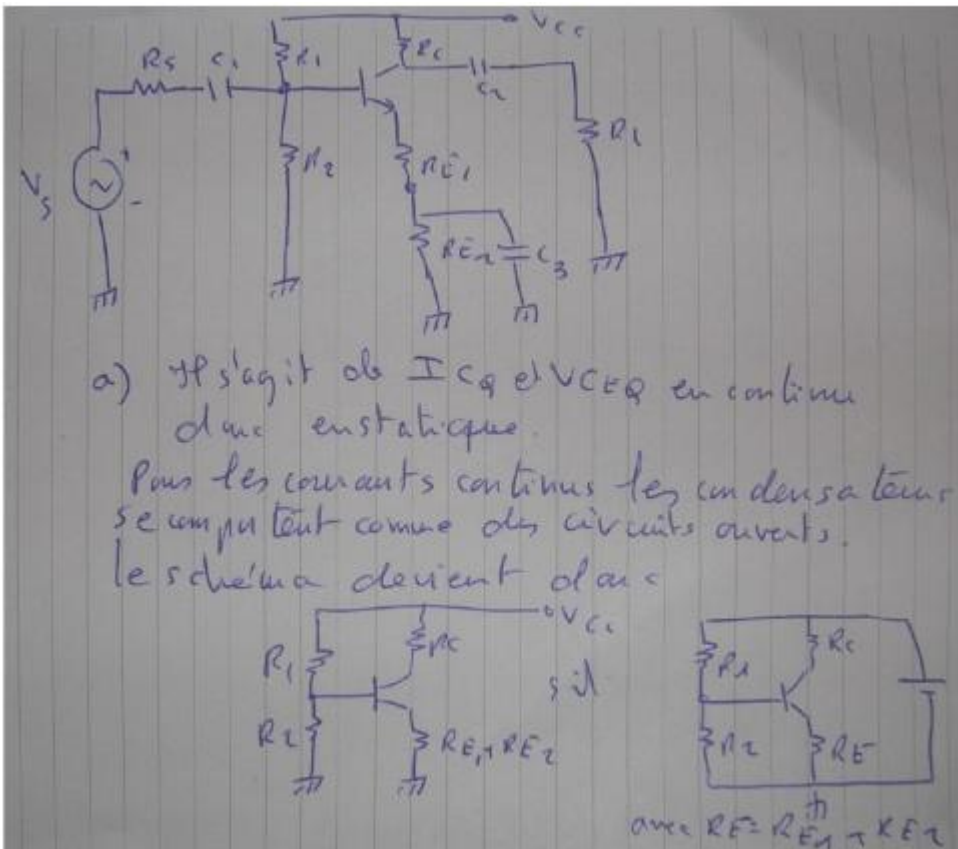 VCC
RS C1 R1 RC C2
VS + - R2 RE1 RL
RE2 C3
a) Il s'agit de ICQ et VCEQ en continu
donc en statique.
Pour les courants continus les condensateurs
se comportent comme des circuits ouverts.
le schéma devient donc
VCC
R1 RC R1 RC
soit
R2 RE1+RE2 R2 RE
avec RE = RE1 + RE2